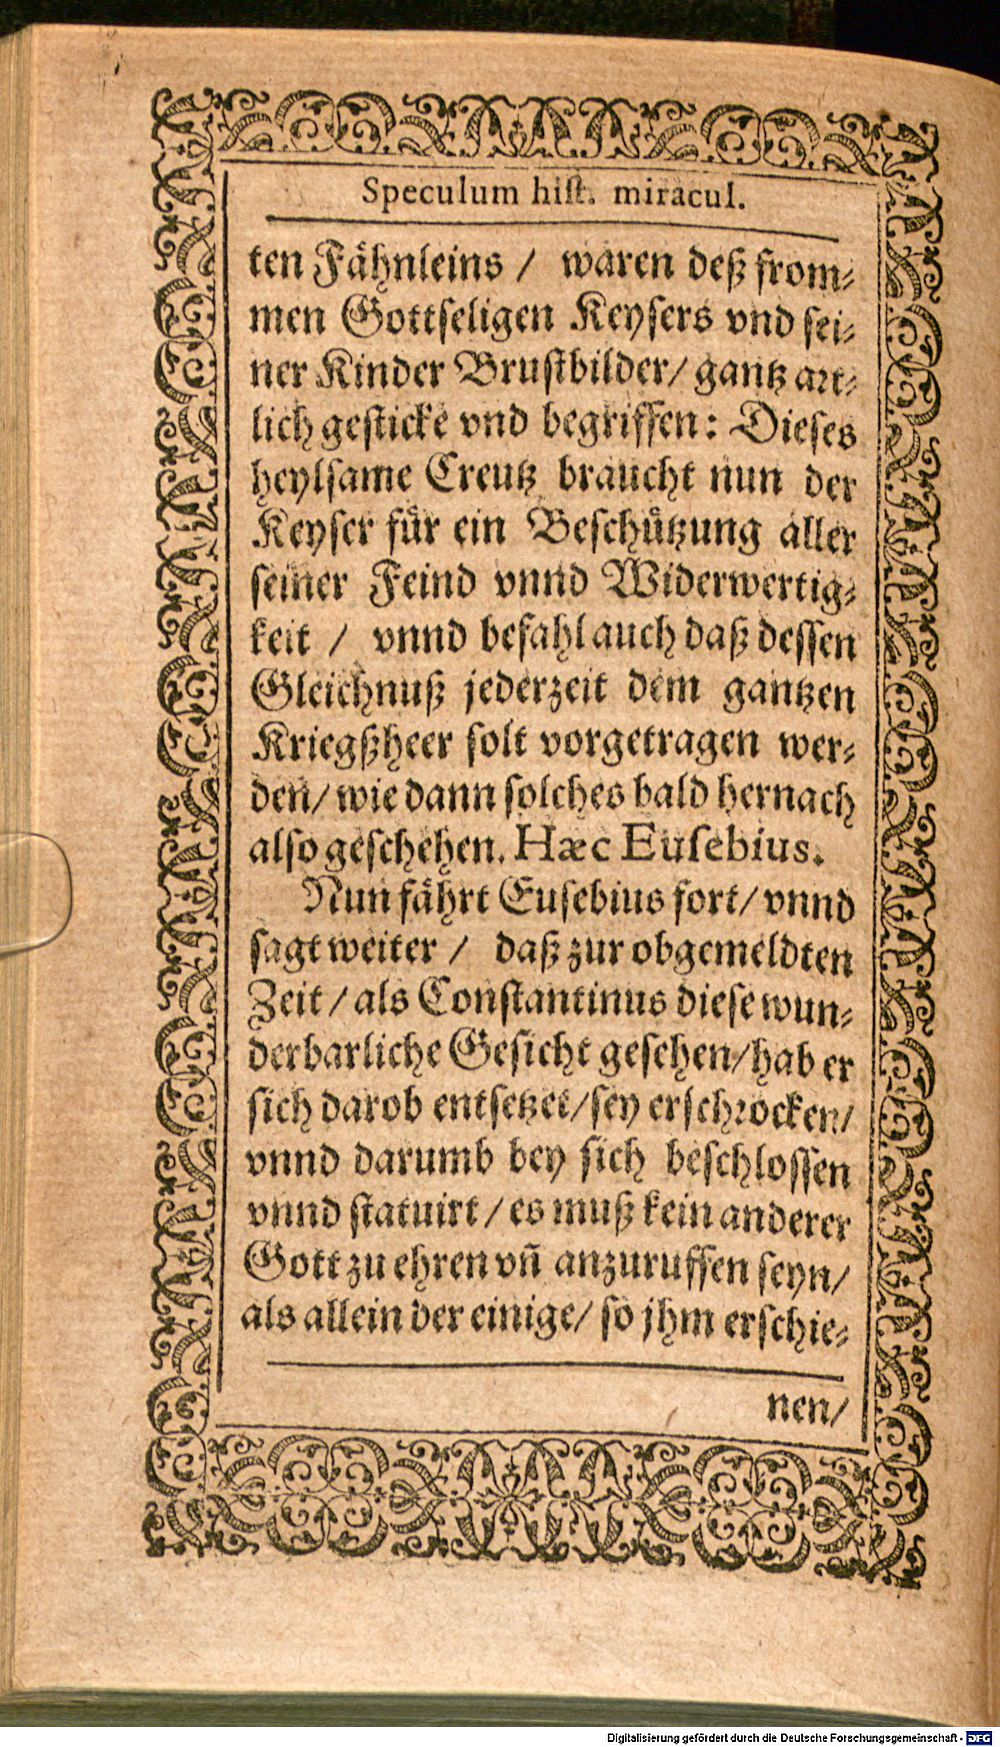 Speculum hist. miracul.
ten Fähnleins / waren deß from-
men Gottseligen Keysers vnd sei-
ner Kinder Brustbilder/ gantz art-
lich gestickt vnd begriffen: Dieses
heylsame Creutz braucht nun der
Keyser für ein Beschützung aller
seiner Feind vnnd Widerwertig-
keit / vnnd befahl auch daß dessen
Gleichnuß jederzeit dem gantzen
Kriegßheer solt vorgetragen wer-
den/ wie dann solches bald hernach
also geschehen. Hæc Eusebius.
Nun fährt Eusebius fort/ vnnd
sagt weiter / daß zur obgemeldten
Zeit / als Constantinus diese wun-
derbarliche Gesicht gesehen/ hab er
sich darob entsetzet/ sey erschrocken/
vnnd darumb bey sich beschlossen
vnnd statuirt / es muß kein anderer
Gott zu ehren vñ anzuruffen seyn/
als allein der einige/ so jhm erschie-
nen/
Digitalisierung gefördert durch die Deutsche Forschungsgemeinschaft - DFG